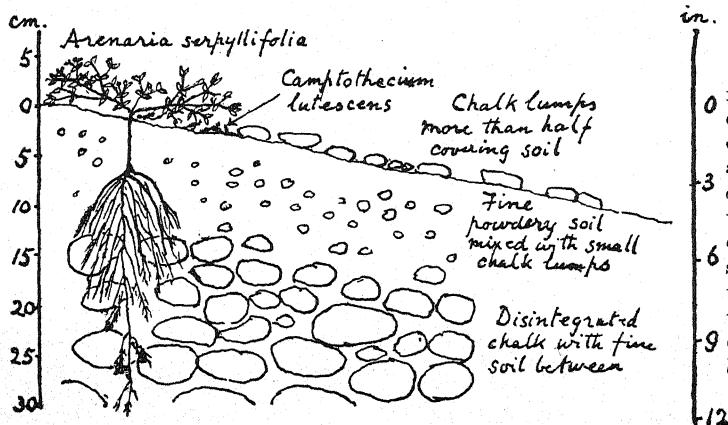 cm.
in.
Arenaria serpyllifolia
Camptothecium
lutescens
Chalk lumps
more than half
covering soil
Fine
powdery soil
mixed with small
chalk lumps
Disintegrated
chalk with fine
soil between
5
0
5
10
15
20
25
30
0
3
6
9
12